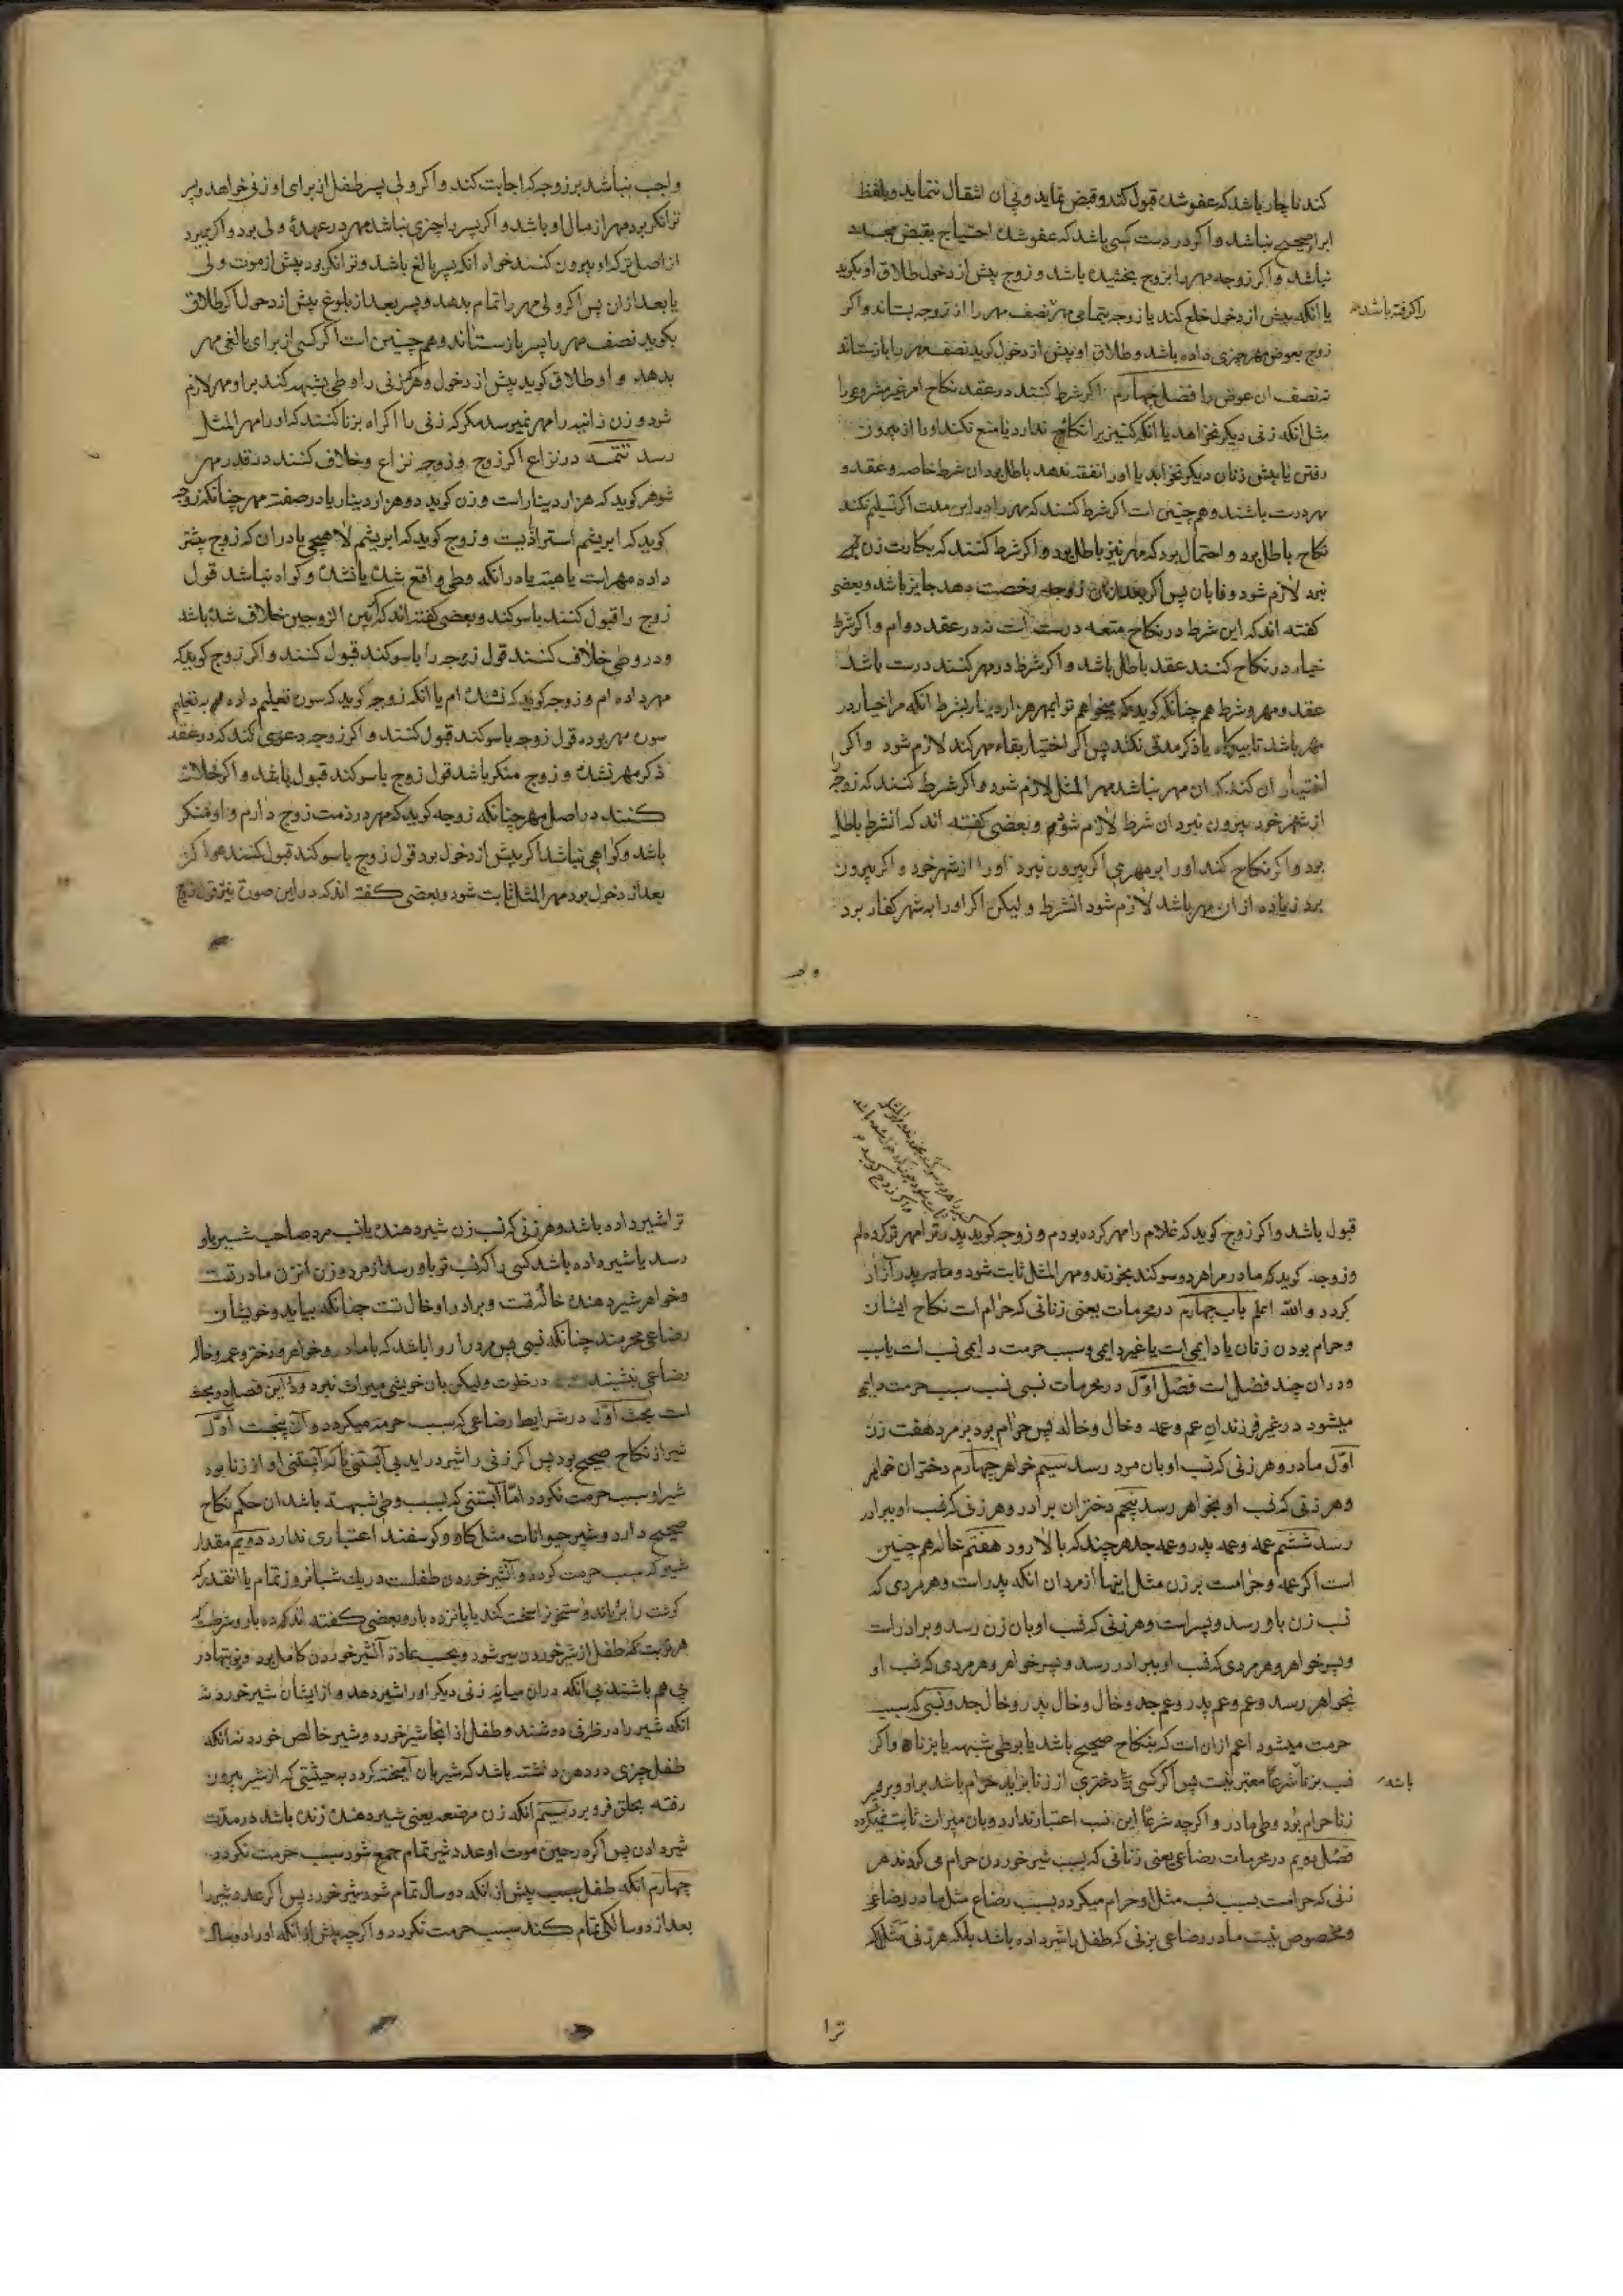 کند ناچار باشد که عفو شده قبول کند و قبض نماید و بی آن انتقال ننماید و بلفظ
ابرا صحیح نباشد و اکر در دست کسی باشد که عفو شده احتیاج بقبض مجدد
نباشد و اکر زوجه مهر را بزوج بخشیده باشد و زوج پیش از دخول طلاق او بکوید
یا انکه پیش از دخول خلع کند با زوجه بتمامی مهر نصف مهر را از زوجه بستاند و اکر
را کرفته باشد
زوج بعوض مهر چیزی داده باشد و طلاق او پیش از دخول کوید نصف مهر را بازستاند
نه نصف ان عوض را فصل چهارم اکر شرط کنند در عقد نکاح امر غیر مشروع را
مثل انکه زنی دیکر نخواهد یا انکه کنیز برا نکاح ندارد یا منع نکند او را از بیرون
رفتن یا پیش زنان دیکر نخوابد یا او را نفقه ندهد باطل بود ان شرط خاصه و عقد و
مهر درست باشند و هم چنین است اکر شرط کنند که مهر را در این مدت اکر تسلیم نکند
نکاح باطل بود و احتمال بود که مهر نیز باطل بود و اکر شرط کنند که بکارت زن
نبرد لازم شود وفا بان پس اکر بعد از ان زوجه رخصت دهد جایز باشد و بعضی
کفته اند که این شرط در نکاح متعه درست است نه در عقد دوام و اکر شرط
خیار در نکاح کنند عقد باطل باشد و اکر شرط در مهر کنند درست باشد
عقد و مهر و شرط هم چنانکه کوید که میخواهم ترا بمهر هزار دینار بشرط انکه مرا خیار در
مهر باشد تا یکماه یا ذکر مدتی نکند پس اکر اختیار بقاء مهر کند لازم شود و اکر
اختیار ان کند که ان مهر نباشد مهر المثل لازم شود و اکر شرط کنند که زوجه
از شهر خود بیرون نبرد ان شرط لازم شود و بعضی کفته اند که انشرط باطل
بود و اکر نکاح کند او را بر مهری اکر بیرون نبرد او را از شهر خود و اکر بیرون
برد زیاده از ان مهر باشد لازم شود انشرط و لیکن اکر او را به شهر کفار برد
واجب نباشد بر زوجه که اجابت کند و اکر ولی پسر طفل از برای او زنی خواهد و پسر
توانکر بود مهر از مال او باشد و اکر پسر را چیزی نباشد مهر در عهدهٔ ولی بود و اکر بمیرد
از اصل ترکه او بیرون کنند خواه انکه پسر بالغ باشد و توانکر بود پیش از موت ولی
یا بعد از ان پس اکر ولی مهر را تمام بدهد و پسر بعد از بلوغ پیش از دخول اکر طلاق
بکوید نصف مهر را پسر بازستاند و هم چنین است اکر کسی از برای بالغی مهر
بدهد و او طلاق کوید پیش از دخول و هرکه زنی را وطی بشبهه کند بر او مهر لازم
شود و زن زانیه را مهر نمیرسد مکر که زنی را اکراه بزنا کنند که او را مهر المثل
رسد تتمـه در نزاع اکر زوج و زوجه نزاع و خلاف کنند در قدر مهر
شوهر کوید که هزار دینار است و زن کوید دو هزار دینار یا در صفت مهر چنانکه زوجه
کوید که ابریشم استرابادیست و زوج کوید که ابریشم لاهیجی یا در ان که زوج پیشتر
داده مهر است یا هبه یا در انکه وطی واقع شده یا نشده و کواه نباشد قول
زوج را قبول کنند با سوکند و بعضی کفته اند که اکر بین الزوجین خلاف شده باشد
و در وطی خلاف کنند قول زوجه را با سوکند قبول کنند و اکر زوج کوید که
مهر داده ام و زوجه کوید که نداده ام یا انکه زوجه کوید که سوره تعلیم داده ام به تعلیم
سوره مهر بوده قول زوجه با سوکند قبول کنند و اکر زوجه دعوی کند که در عقد
ذکر مهر نشده و زوج منکر باشد قول زوج با سوکند قبول باشد و اکر خلاف
کنند در اصل مهر چنانکه زوجه کوید که مهر در ذمت زوج دارم و او منکر
باشد و کواهی نباشد اکر پیش از دخول بود قول زوج با سوکند قبول کنند و اکر
بعد از دخول بود مهر المثل ثابت شود و بعضی کفته اند که در این صورة نیز قول زوج
قبول باشد و اکر زوج کوید که غلام را مهر کرده بودم و زوجه کوید پدر ترا مهر تو کرده ام
و زوجه کوید که مادر مرا هر دو سوکند بخورند و مهر المثل ثابت شود و مادر پدر آزاد
کردد و الله اعلم باب چهارم در محرمات یعنی زنانی که حرام است نکاح ایشان
و حرام بودن زنان یا دایمی است یا غیر دایمی و سبب حرمت دایمی نسب است یا سبب
و در ان چند فصل است فصل اول در محرمات نسبی نسب سبب حرمت دایم
میشود در غیر فرزندان عم و عمه و خال و خاله پس حرام بود بر مرد هفت زن
اول مادر و هر زنی که نسب او بان مرد رسد سیم خواهر چهارم دختران خواهر
و هر زنی که نسب او بخواهر رسد پنجم دختران برادر و هر زنی که نسب او ببرادر
رسد ششم عمه و عمه پدر و عمه جد هر چند که بالا رود هفتم خاله هم چنین
است اکر عمه و حرامست بر زن مثل اینها از مردان انکه پدر است و هر مردی که
نسب زن باو رسد و پسر است و هر زنی که نسب او بان زن رسد و برادر است
و پسر خواهر و هر مردی که نسب او ببرادر رسد و پسر خواهر و هر مردی که نسب او
بخواهر رسد و عم و عم پدر و عم جد و خال و خال پدر و خال جد و نسبی که سبب
حرمت میشود اعم از ان است که بنکاح صحیح باشد یا بوطی شبهه یا بزنا و اکر
نسب بزنا شرعاً معتبر نیست پس اکر کسی را دختری از زنا بزاید حرام باشد بر او و بر پسر
باشد
زنا حرام بود وطی مادر و اکرچه شرعاً این نسب اعتبار ندارد و بان میراث ثابت نمیکردد
فصل دویم در محرمات رضاعی یعنی زنانی که بسبب شیر خوردن حرام می کردند هر
زنی که حرامست بسبب نسب مثل او حرام میکردد بسبب رضاع مثل مادر رضاعی
و مخصوص نیست مادر رضاعی بزنی که طفل را شیر داده باشد بلکه هر زنی مثلا که
ترا
ترا شیر داده باشد و هر زنی که نسب زن شیر دهنده یا نسب مرد صاحب شیر باو
رسد یا شیر داده باشد کسی را که نسب تو باو رسد از مرد و زن انزن مادر تست
و خواهر شیر دهنده خاله تست و برادر او خال تست چنانکه بیاید و خویشان
رضاعی محرمند چنانکه نسبی پس مرد را روا باشد که با مادر و خواهر و دختر و عمه و خاله
رضاعی بنشیند در خلوت و لیکن بان خویشی میراث نبرد و در این فصل دو بحث
است بحث اول در شرایط رضاعی که سبب حرمة میکردد و آن پنجست اول
شیر از نکاح صحیح بود پس اکر زنی را شیر دراید بی آبستنی یا که آبستنی او از زنا بود
شیر او سبب حرمت نکردد امّا آبستنی که بسبب وطی شبهه باشد ان حکم نکاح
صحیح دارد و شیر حیوانات مثل کاو و کوسفند اعتباری ندارد دویم مقدار
شیر که سبب حرمت کردد و آنشیر خوردن طفلست در یک شبانروز تمام یا انقدر که
کوشت را برویاند و استخوانرا سخت کند یا پانزده بار و بعضی کفته اند که ده بار و شرطست
هر نوبت که طفل از شیر خوردن سیر شود و بحسب عادة آنشیر خوردن کامل بود و نوبتها در
پی هم باشند بی انکه در ان میانه زنی دیکر او را شیر دهد و از پستان شیر خورد نه
انکه شیر را در ظرفی دوشند و طفل از انجا شیر خورد و شیر خالص خورد نه انکه
طفل چیزی در دهن داشته باشد که شیر بان آمیخته کردد به حیثیتی که از شیر بیرون
رفته بحلق فرو برد سیم انکه زن مرضعه یعنی شیر دهنده زنده باشد در مدت
شیر دادن پس اکر در حین موت او عدد شیر تمام جمع شود سبب حرمت نکردد
چهارم انکه طفل بسبب پیش از انکه دو سال تمام شود شیر خورد پس اکر عدد شیر را
بعد از دو سالکی تمام کند سبب حرمت نکردد و اکرچه پیش از انکه او را دو سال